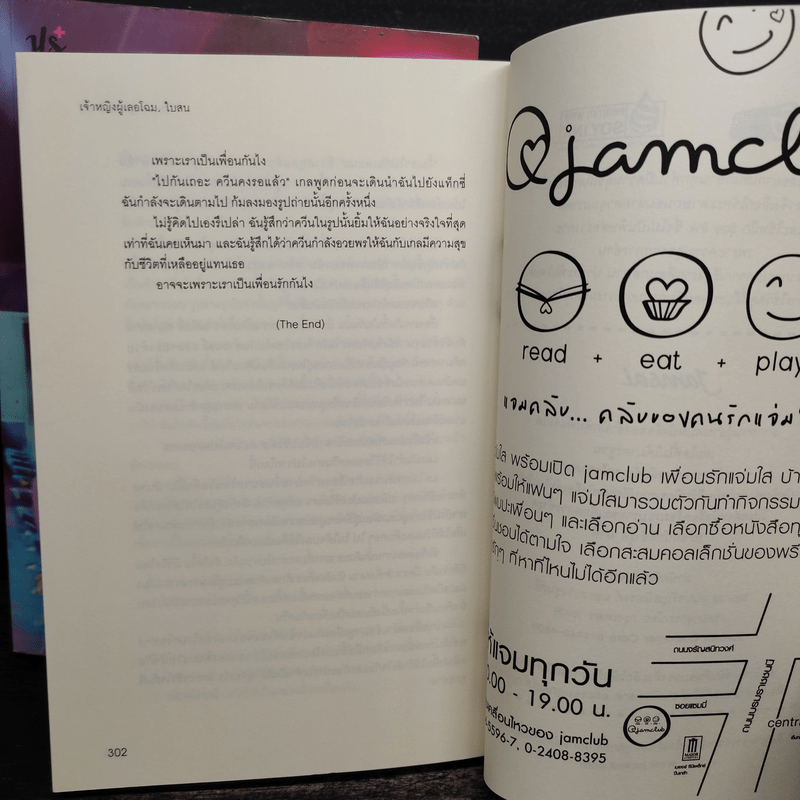 เจ้าหญิงผู้เลอโฉม, ใบสน
เพราะเราเป็นเพื่อนกันไง
"ไปกันเถอะ ควีนคงรอแล้ว" เกลพูดก่อนจะเดินนำฉันไปยังแท็กซี่
ฉันกำลังจะเดินตามไป ก้มลงมองรูปถ่ายนั้นอีกครั้งหนึ่ง
ไม่รู้คิดไปเองรึเปล่า ฉันรู้สึกว่าควีนในรูปนั้นยิ้มให้ฉันอย่างจริงใจที่สุด
เท่าที่ฉันเคยเห็นมา และฉันรู้สึกได้ว่าควีนกำลังอวยพรให้ฉันกับเกลมีความสุข
กับชีวิตที่เหลืออยู่แทนเธอ
อาจจะเพราะเราเป็นเพื่อนรักกันไง
(The End)
302
@jamcl
read + eat + play
แจมคลับ... คลับของคนรักแจ่ม
ใส พร้อมเปิด jamclub เพื่อนรักแจ่มใส บ้า
พร้อมให้แฟนๆ แจ่มใสมารวมตัวกันทำกิจกรรม
ปะเพื่อนๆ และเลือกอ่าน เลือกซื้อหนังสือทุ
ชอบได้ตามใจ เลือกสะสมคอลเล็กชั่นของพรี
ๆ ที่หาที่ไหนไม่ได้อีกแล้ว
แจมทุกวัน
.00 - 19.00 น.
เคลื่อนไหวของ jamclub
-5596-7, 0-2408-8395
ถนนจรัญสนิทวงศ์
ถนนบรมราชชนนี
ซอยแซมมี่
@jamclub
MAJOR
เมเจอร์ ซีนีเพล็กซ์
ปิ่นเกล้า
centra